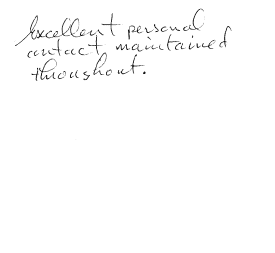 Excellent personal
contact maintained
throughout.